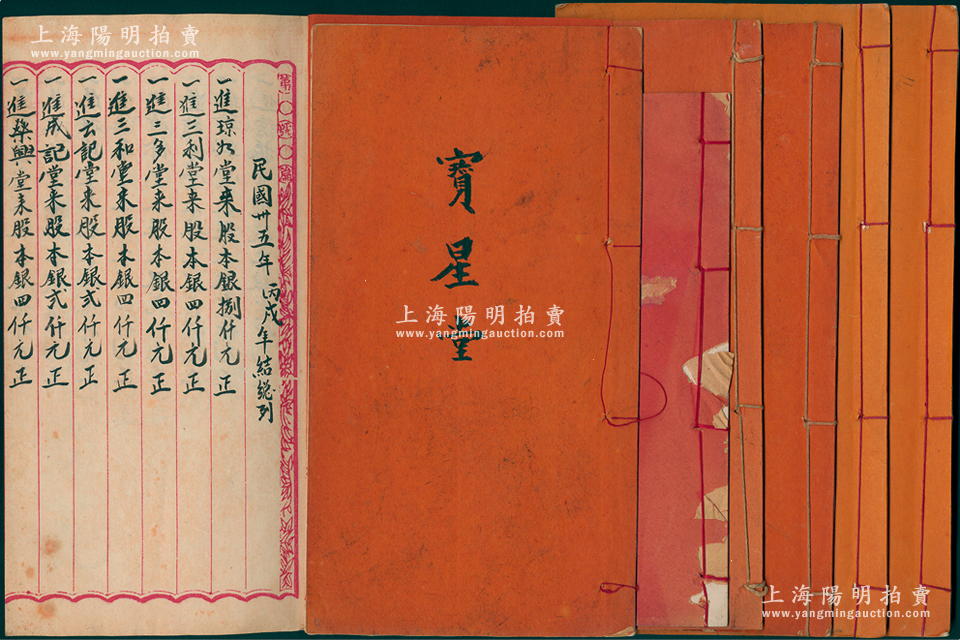 上海陽明拍賣
www.yangmingauction.com
民國卅五年 丙戌年結總列
一進琼次堂來股本銀捌仟元正
一進三利堂来股本銀四仟元正
一進三多堂来股本銀四仟元正
一進三和堂来股本銀四仟元正
一進云記堂来股本銀弍仟元正
一進成記堂来股本銀弍仟元正
一進榮興堂来股本銀四仟元正
寶星堂
上海陽明拍賣
www.yangmingauction.com
上海陽明拍賣
www.yangmingauction.com